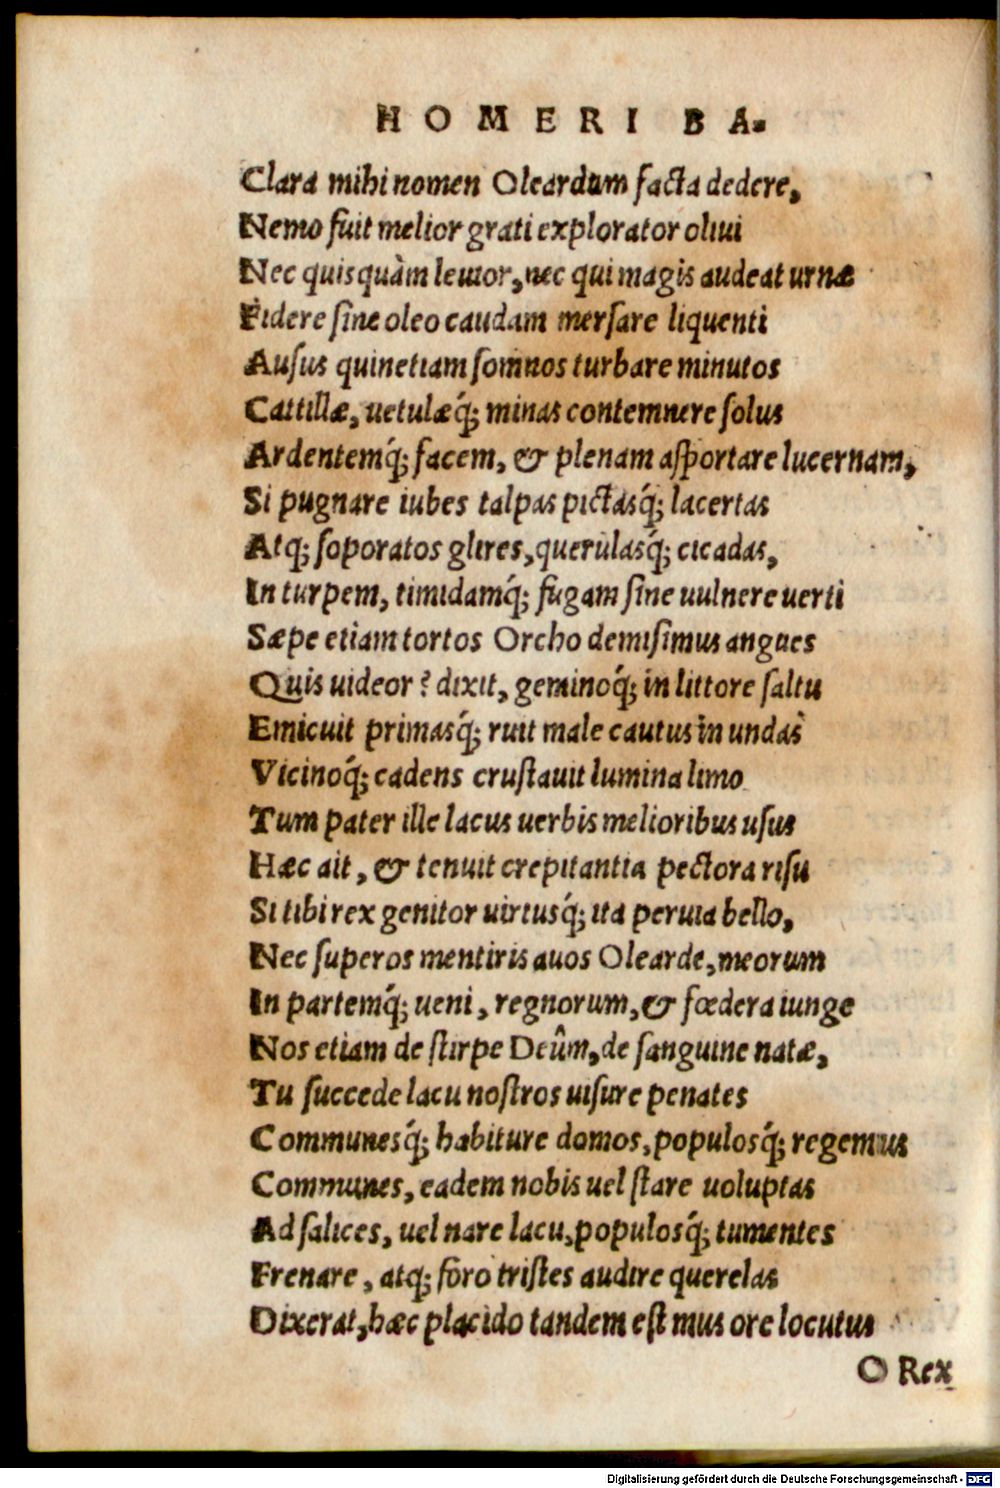 HOMERI BA-
Clara mihi nomen Oleardum facta dedere,
Nemo fuit melior grati explorator oliui
Nec quisquàm leuior, nec qui magis audeat urnæ
Fidere sine oleo caudam mersare liquenti
Ausus quinetiam somnos turbare minutos
Cattillæ, uetulæq́; minas contemnere solus
Ardentemq́; facem, & plenam asportare lucernam,
Si pugnare iubes talpas pictasq́; lacertas
Atq; soporatos glires, querulasq́; cicadas,
In turpem, timidamq́; fugam sine uulnere uerti
Sæpe etiam tortos Orcho demisimus angues
Quis uideor? dixit, geminoq́; in littore saltu
Emicuit primasq́; ruit male cautus in undas
Vicinoq́; cadens crustauit lumina limo
Tum pater ille lacus uerbis melioribus usus
Hæc ait, & tenuit crepitantia pectora risu
Si tibi rex genitor uirtusq́; ita peruia bello,
Nec superos mentiris auos Olearde, meorum
In partemq́; ueni, regnorum, & fœdera iunge
Nos etiam de stirpe Deûm, de sanguine natæ,
Tu succede lacu nostros uisure penates
Communesq́; habiture domos, populosq́; regemus
Communes, eadem nobis uel stare uoluptas
Ad salices, uel nare lacu, populosq́; tumentes
Frenare, atq; foro tristes audire querelas
Dixerat, hæc placido tandem est mus ore locutus
O Rex
Digitalisierung gefördert durch die Deutsche Forschungsgemeinschaft - DFG